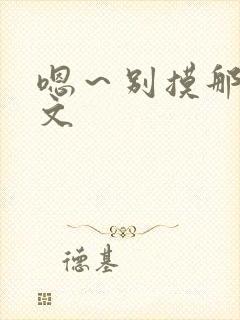 嗯～别摸那
文
德基